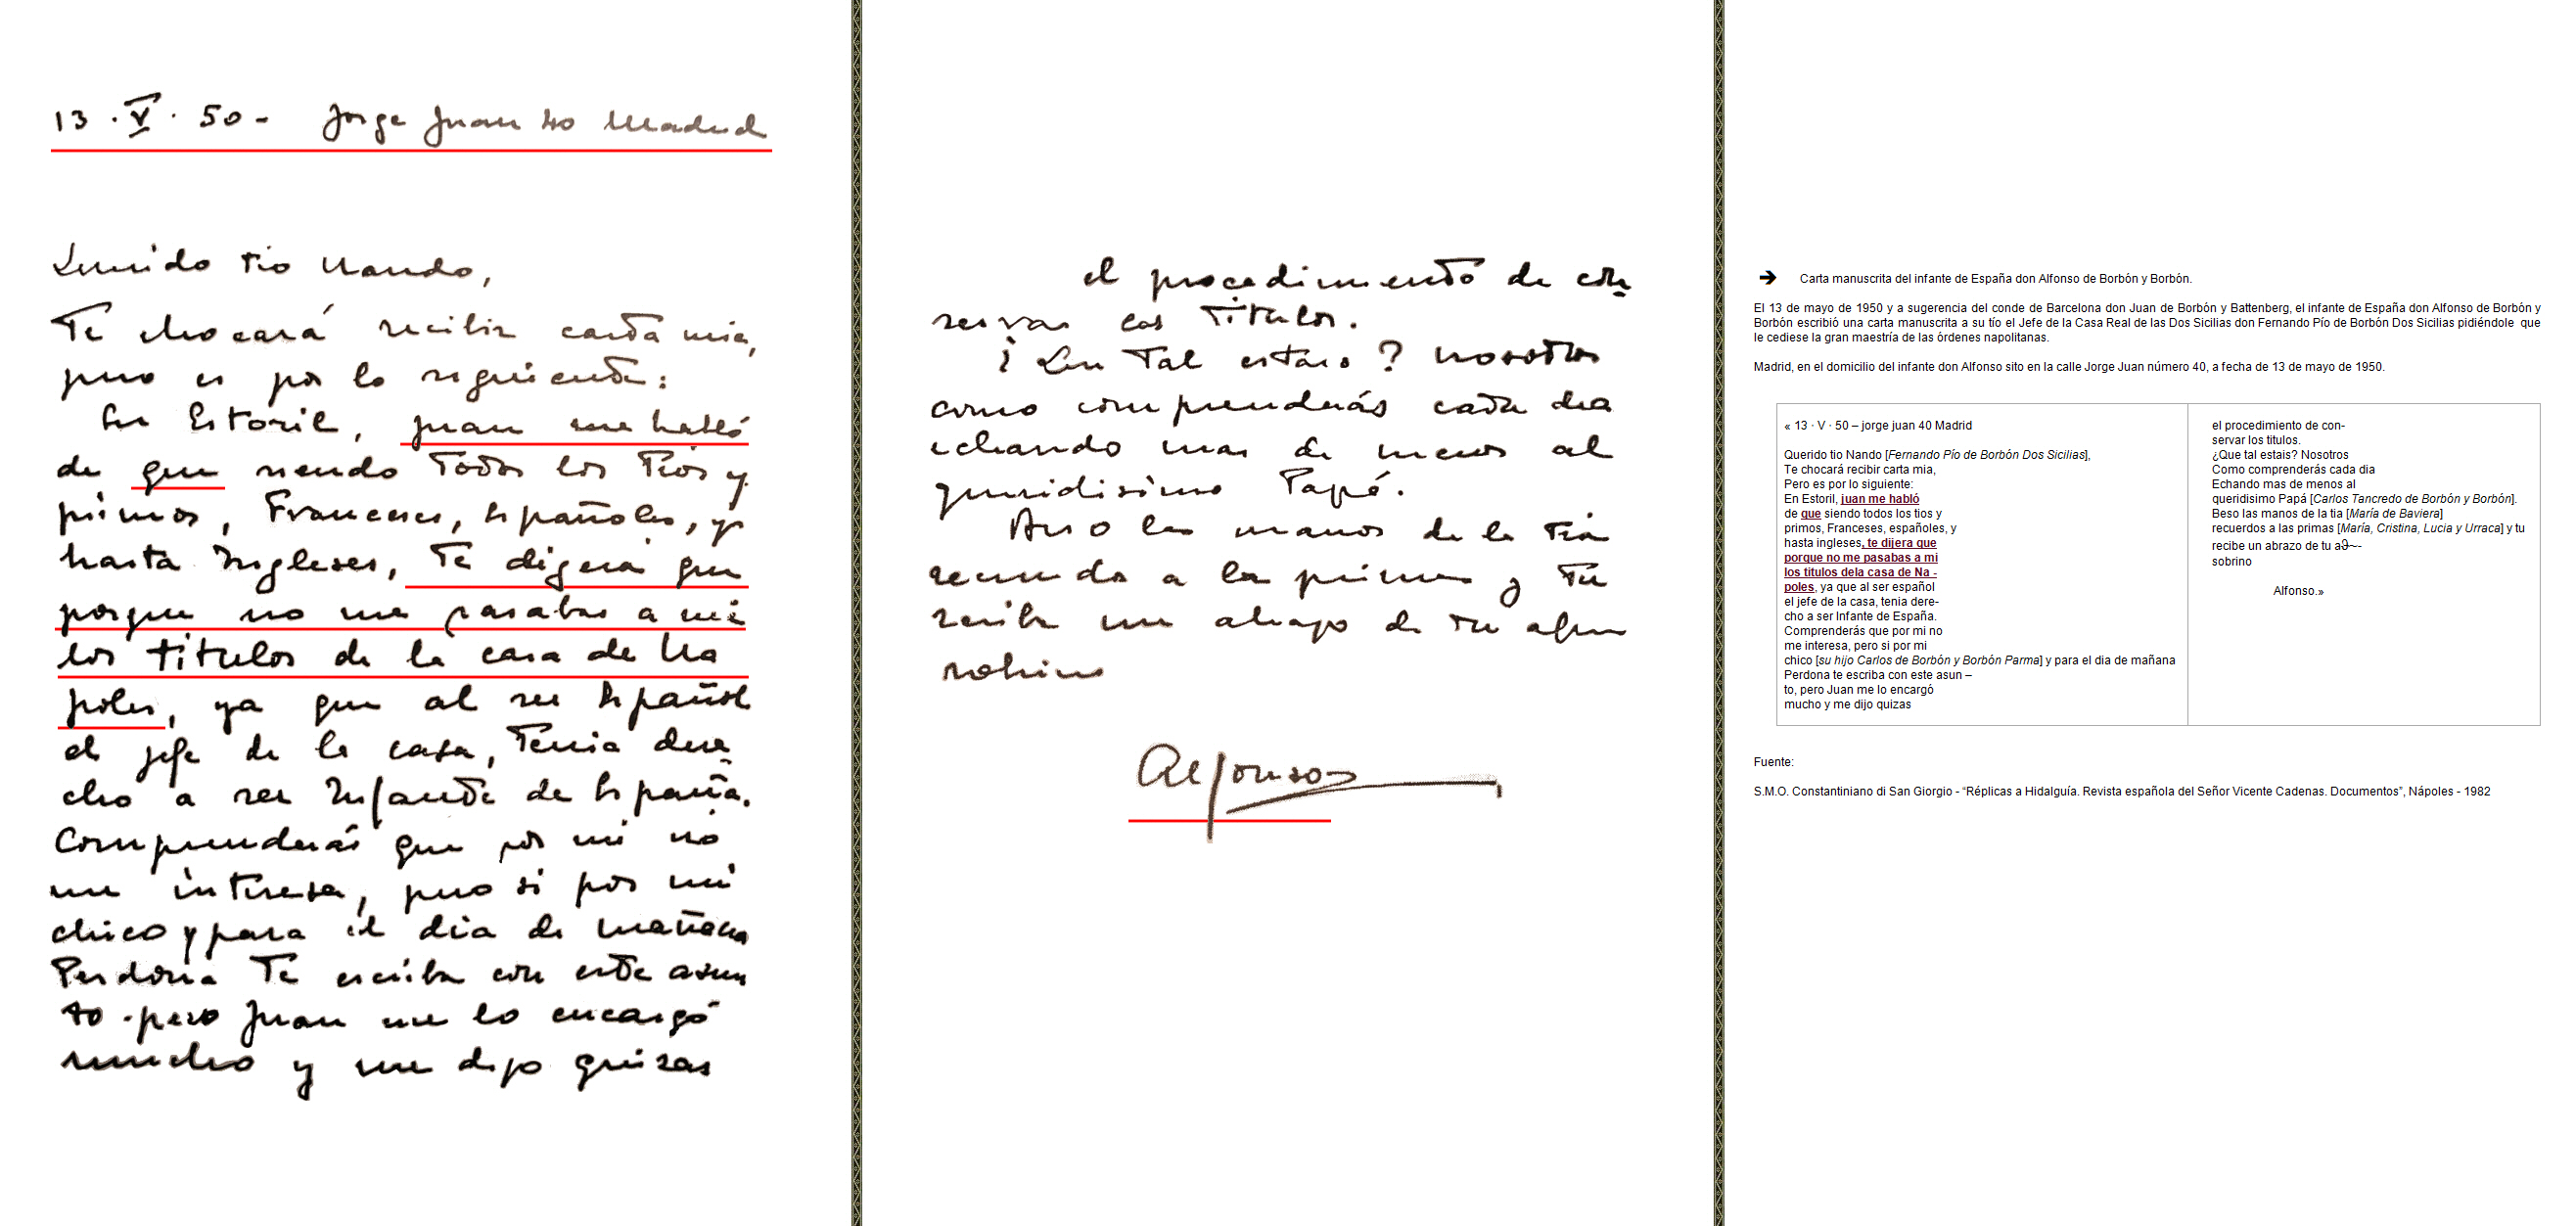 13 · V · 50 - Jorge Juan 40 Madrid
Querido tio Nando,
Te chocará recibir carta mia,
pero es por lo siguiente:
En Estoril, juan me habló
de que siendo todos los tios y
primos, Franceses, españoles, y
hasta Ingleses, te dijera que
porque no me pasabas a mi
los titulos de la casa de Na
poles, ya que al ser Español
el jefe de la casa, tenia dere
cho a ser Infante de España.
Comprenderás que por mi no
me interesa, pero si por mi
chico y para el dia de mañana
Perdona te escriba con este asun
to - pero Juan me lo encargó
mucho y me dijo quizas
el procedimiento de con
servar los titulos.
¿Que tal estais? Nosotros
como comprenderás cada dia
echando mas de menos al
queridisimo Papá.
Beso las manos de la tia
recuerdos a las primas y tu
recibe un abrazo de tu
sobrino
Alfonso
➔ Carta manuscrita del infante de España don Alfonso de Borbón y Borbón.
El 13 de mayo de 1950 y a sugerencia del conde de Barcelona don Juan de Borbón y Battenberg, el infante de España don Alfonso de Borbón y
Borbón escribió una carta manuscrita a su tío el Jefe de la Casa Real de las Dos Sicilias don Fernando Pío de Borbón Dos Sicilias pidiéndole que
le cediese la gran maestría de las órdenes napolitanas.
Madrid, en el domicilio del infante don Alfonso sito en la calle Jorge Juan número 40, a fecha de 13 de mayo de 1950.
« 13 · V · 50 – jorge juan 40 Madrid
Querido tio Nando [Fernando Pío de Borbón Dos Sicilias],
Te chocará recibir carta mia,
Pero es por lo siguiente:
En Estoril, juan me habló
de que siendo todos los tios y
primos, Franceses, españoles, y
hasta ingleses, te dijera que
porque no me pasabas a mi
los titulos dela casa de Na -
poles, ya que al ser español
el jefe de la casa, tenia dere-
cho a ser Infante de España.
Comprenderás que por mi no
me interesa, pero si por mi
chico [su hijo Carlos de Borbón y Borbón Parma] y para el dia de mañana
Perdona te escriba con este asun –
to, pero Juan me lo encargó
mucho y me dijo quizas
el procedimiento de con-
servar los titulos.
¿Que tal estais? Nosotros
Como comprenderás cada dia
Echando mas de menos al
queridisimo Papá [Carlos Tancredo de Borbón y Borbón].
Beso las manos de la tia [María de Baviera]
recuerdos a las primas [María, Cristina, Lucia y Urraca] y tu
recibe un abrazo de tu
sobrino
Alfonso.»
Fuente:
S.M.O. Constantiniano di San Giorgio - “Réplicas a Hidalguía. Revista española del Señor Vicente Cadenas. Documentos”, Nápoles - 1982